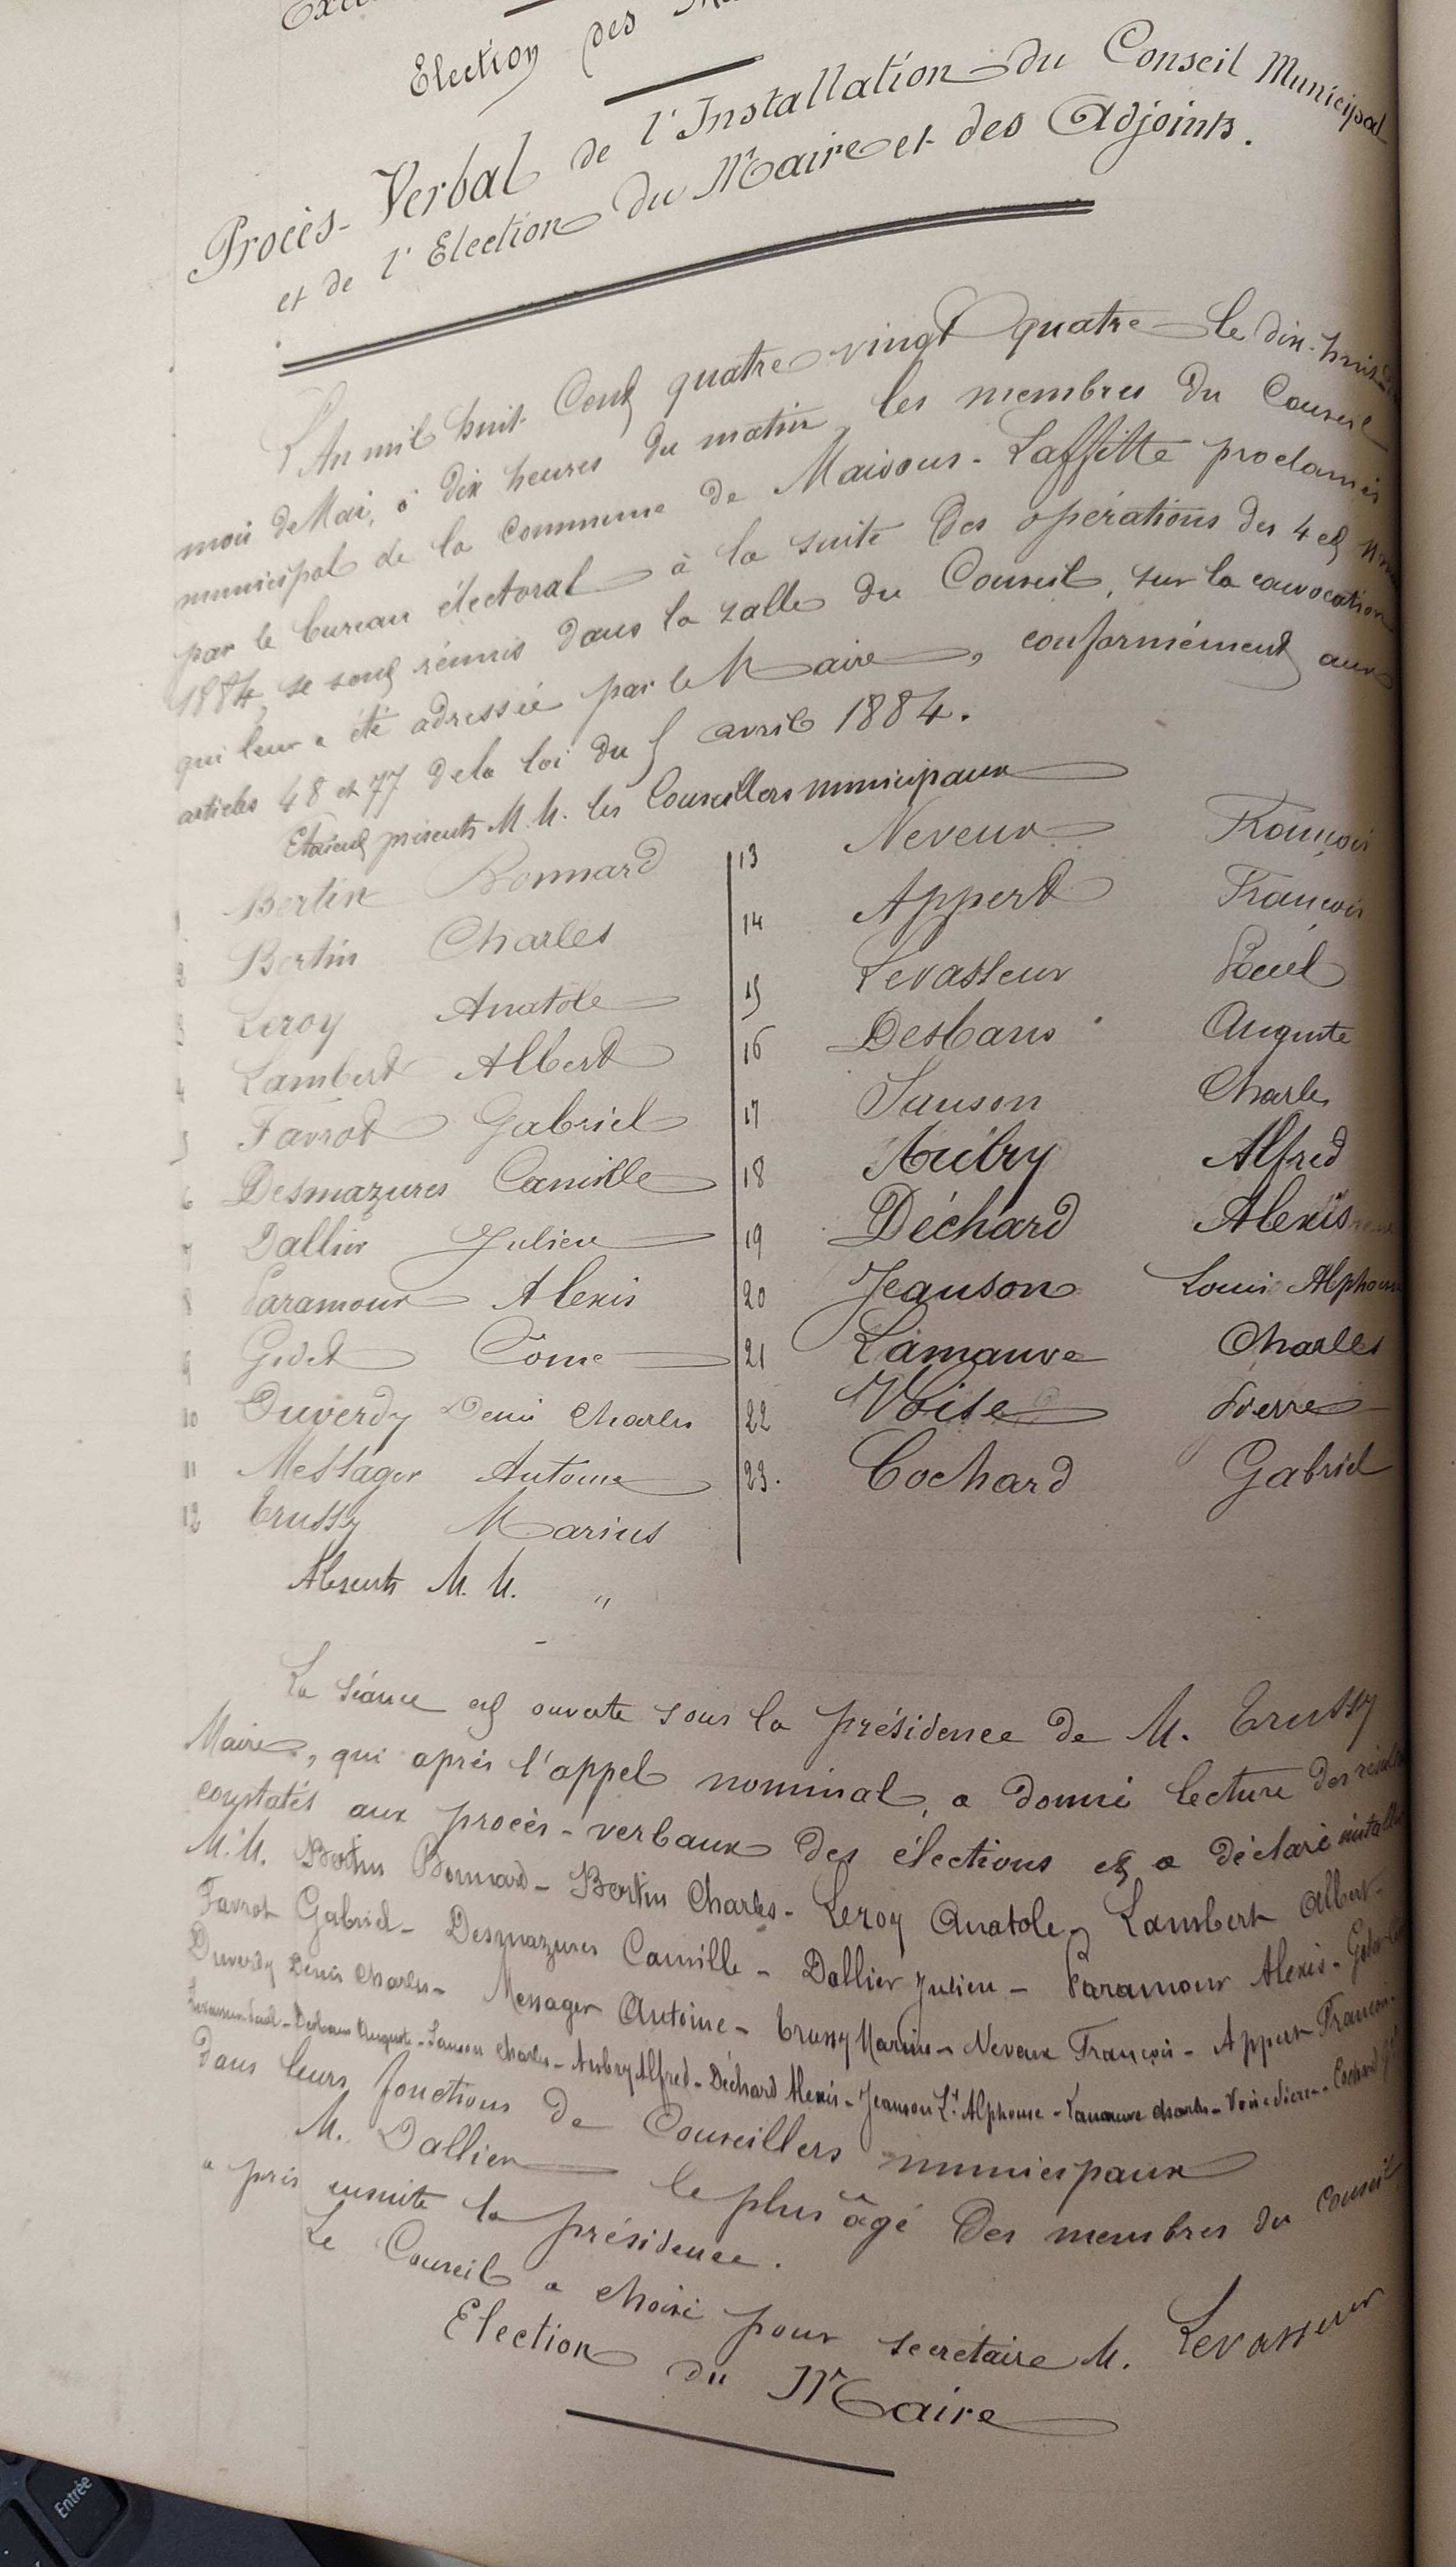 Election des
Procès-Verbal de l'Installation du Conseil Municipal
et de l'Election du Maire et des Adjoints.
L'An mil huit Cent quatre vingt quatre le dix-huit
mois de Mai, à dix heures du matin, les membres du Conseil
municipal de la commune de Maisons-Laffitte proclamés
par le bureau électoral à la suite des opérations des 4 et
1884, se sont réunis dans la salle du Conseil, sur la convocation
qui leur a été adressée par le Maire, conformément aux
articles 48 et 77 de la loi du 5 avril 1884.
Etaient présents M.M. les Conseillers municipaux
1 Bertin Bonnard
2 Bertin Charles
3 Leroy Anatole
4 Lambert Albert
5 Favrot Gabriel
6 Desmazures Camille
7 Dallier Julien
8 Paramour Alexis
9 Godet Côme
10 Duverdy Denis Charles
11 Messager Antoine
12 Trussy Marius
13 Neveux François
14 Appert François
15 Levasseur Paul
16 Desbans Auguste
17 Sanson Charles
18 Aubry Alfred
19 Déchard Alexis
20 Jeanson Louis Alphonse
21 Lamauve Charles
22 Voise Pierre
23. Cochard Gabriel
Absents M. M. "
La séance est ouverte sous la présidence de M. Trussy
Maire, qui après l'appel nominal, a donné lecture des
constatés aux procès-verbaux des élections et a déclaré
M.M. Bertin Bonnard - Bertin Charles - Leroy Anatole - Lambert Albert -
Favrot Gabriel - Desmazures Camille - Dallier Julien - Paramour Alexis -
Duverdy Denis Charles - Messager Antoine - Trussy Marius - Neveux François - Appert François -
Levasseur Paul - Desbans Auguste - Sanson Charles - Aubry Alfred - Déchard Alexis - Jeanson Ls Alphonse - Lamauve Charles - Voise Pierre - Cochard
dans leurs fonctions de Conseillers municipaux
M. Dallier le plus âgé des membres du Conseil
a pris ensuite la présidence.
Le Conseil a choisi pour secrétaire M. Levasseur
Election du Maire
Entrée